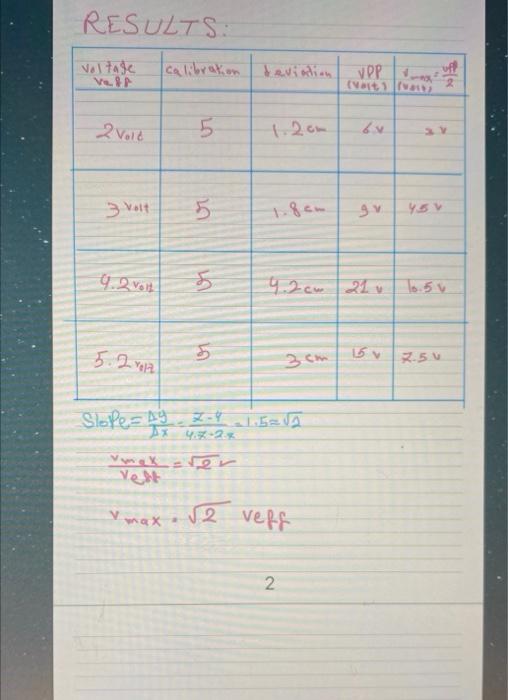 RESULTS:
voltage Veff calibration deviation VPP (volt) Vmax = VPP/2 (volt)
2 Volt 5 1.2 cm 6 v 3 v
3 volt 5 1.8 cm 9 v 4.5 v
4.2 volt 5 4.2 cm 21 v 10.5 v
5.2 volt 5 3 cm 15 v 7.5 v
Slope = Δy/Δx = 7-4/4.7-2.7 = 1.5 ≈ √2
Vmax/Veff = √2
Vmax = √2 Veff
2